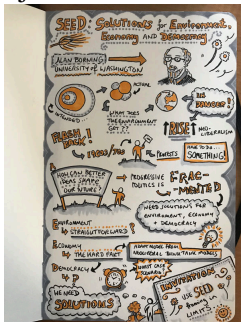 SEED: SOLUTIONS for ENVIRONMENT,
ECONOMY AND DEMOCRACY
ALAN BORNING
UNIVERSITY OF WASHINGTON
ACTUAL
INTENDED...
IN DANGER!
WHAT DOES
THE ENVIRONMENT
GET??
FLASH
BACK!
RISE
NEO-
LIBERALISM
1960/70s
PROTESTS
HAVE TO DO...
SOMETHING!
HOW CAN BETTER
IDEAS SHAPE
OUR FUTURE?
PROGRESSIVE
POLITICS IS
FRAG-
MENTED
NEED SOLUTIONS FOR
ENVIRONMENT, ECONOMY
+ DEMOCRACY
ENVIRONMENT
STRAIGHTFORWARD?
ECONOMY
THE HARD PART
ADAPT MODEL FROM
NEOLIBERAL THINK TANKS
DEMOCRACY
?
WORST CASE
SCENARIO
WE NEED
SOLUTIONS
INVITATION:
USE SEED
framing in
LIMITS